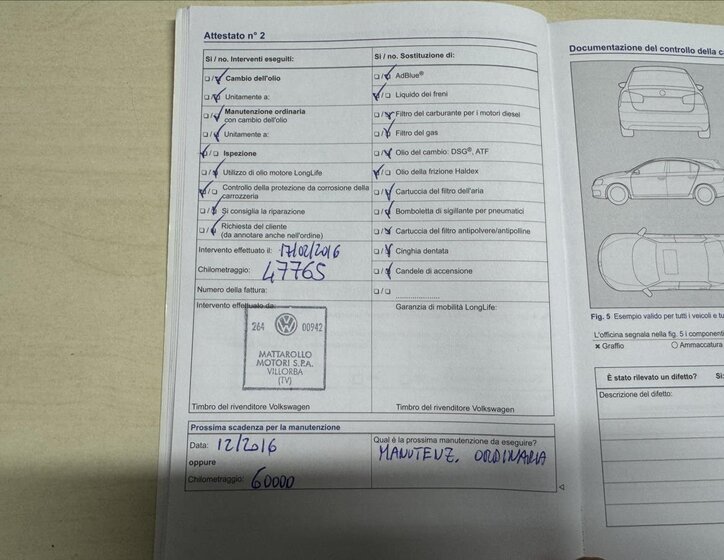 Attestato n° 2
Si / no. Interventi eseguiti:
Cambio dell'olio
Unitamente a:
Manutenzione ordinaria
con cambio dell'olio
Unitamente a:
Ispezione
Utilizzo di olio motore LongLife
Controllo della protezione da corrosione della
carrozzeria
Si consiglia la riparazione
Richiesta del cliente
(da annotare anche nell'ordine)
Intervento effettuato il: 17/02/2016
Chilometraggio: 47765
Numero della fattura:
Intervento effettuato da:
264 VW 00942
MATTAROLLO
MOTORI S.P.A.
VILLORBA
(TV)
Timbro del rivenditore Volkswagen
Si / no. Sostituzione di:
AdBlue®
Liquido dei freni
Filtro del carburante per i motori diesel
Filtro del gas
Olio del cambio: DSG®, ATF
Olio della frizione Haldex
Cartuccia del filtro dell'aria
Bomboletta di sigillante per pneumatici
Cartuccia del filtro antipolvere/antipolline
Cinghia dentata
Candele di accensione
Garanzia di mobilità LongLife:
Timbro del rivenditore Volkswagen
Prossima scadenza per la manutenzione
Data: 12/2016
oppure
Chilometraggio: 60000
Qual è la prossima manutenzione da eseguire?
MANUTENZ. ORDINARIA
Documentazione del controllo della
Fig. 5 Esempio valido per tutti i veicoli e
L'officina segnala nella fig. 5 i
Graffio
Ammaccatura
È stato rilevato un difetto? Si:
Descrizione del difetto: